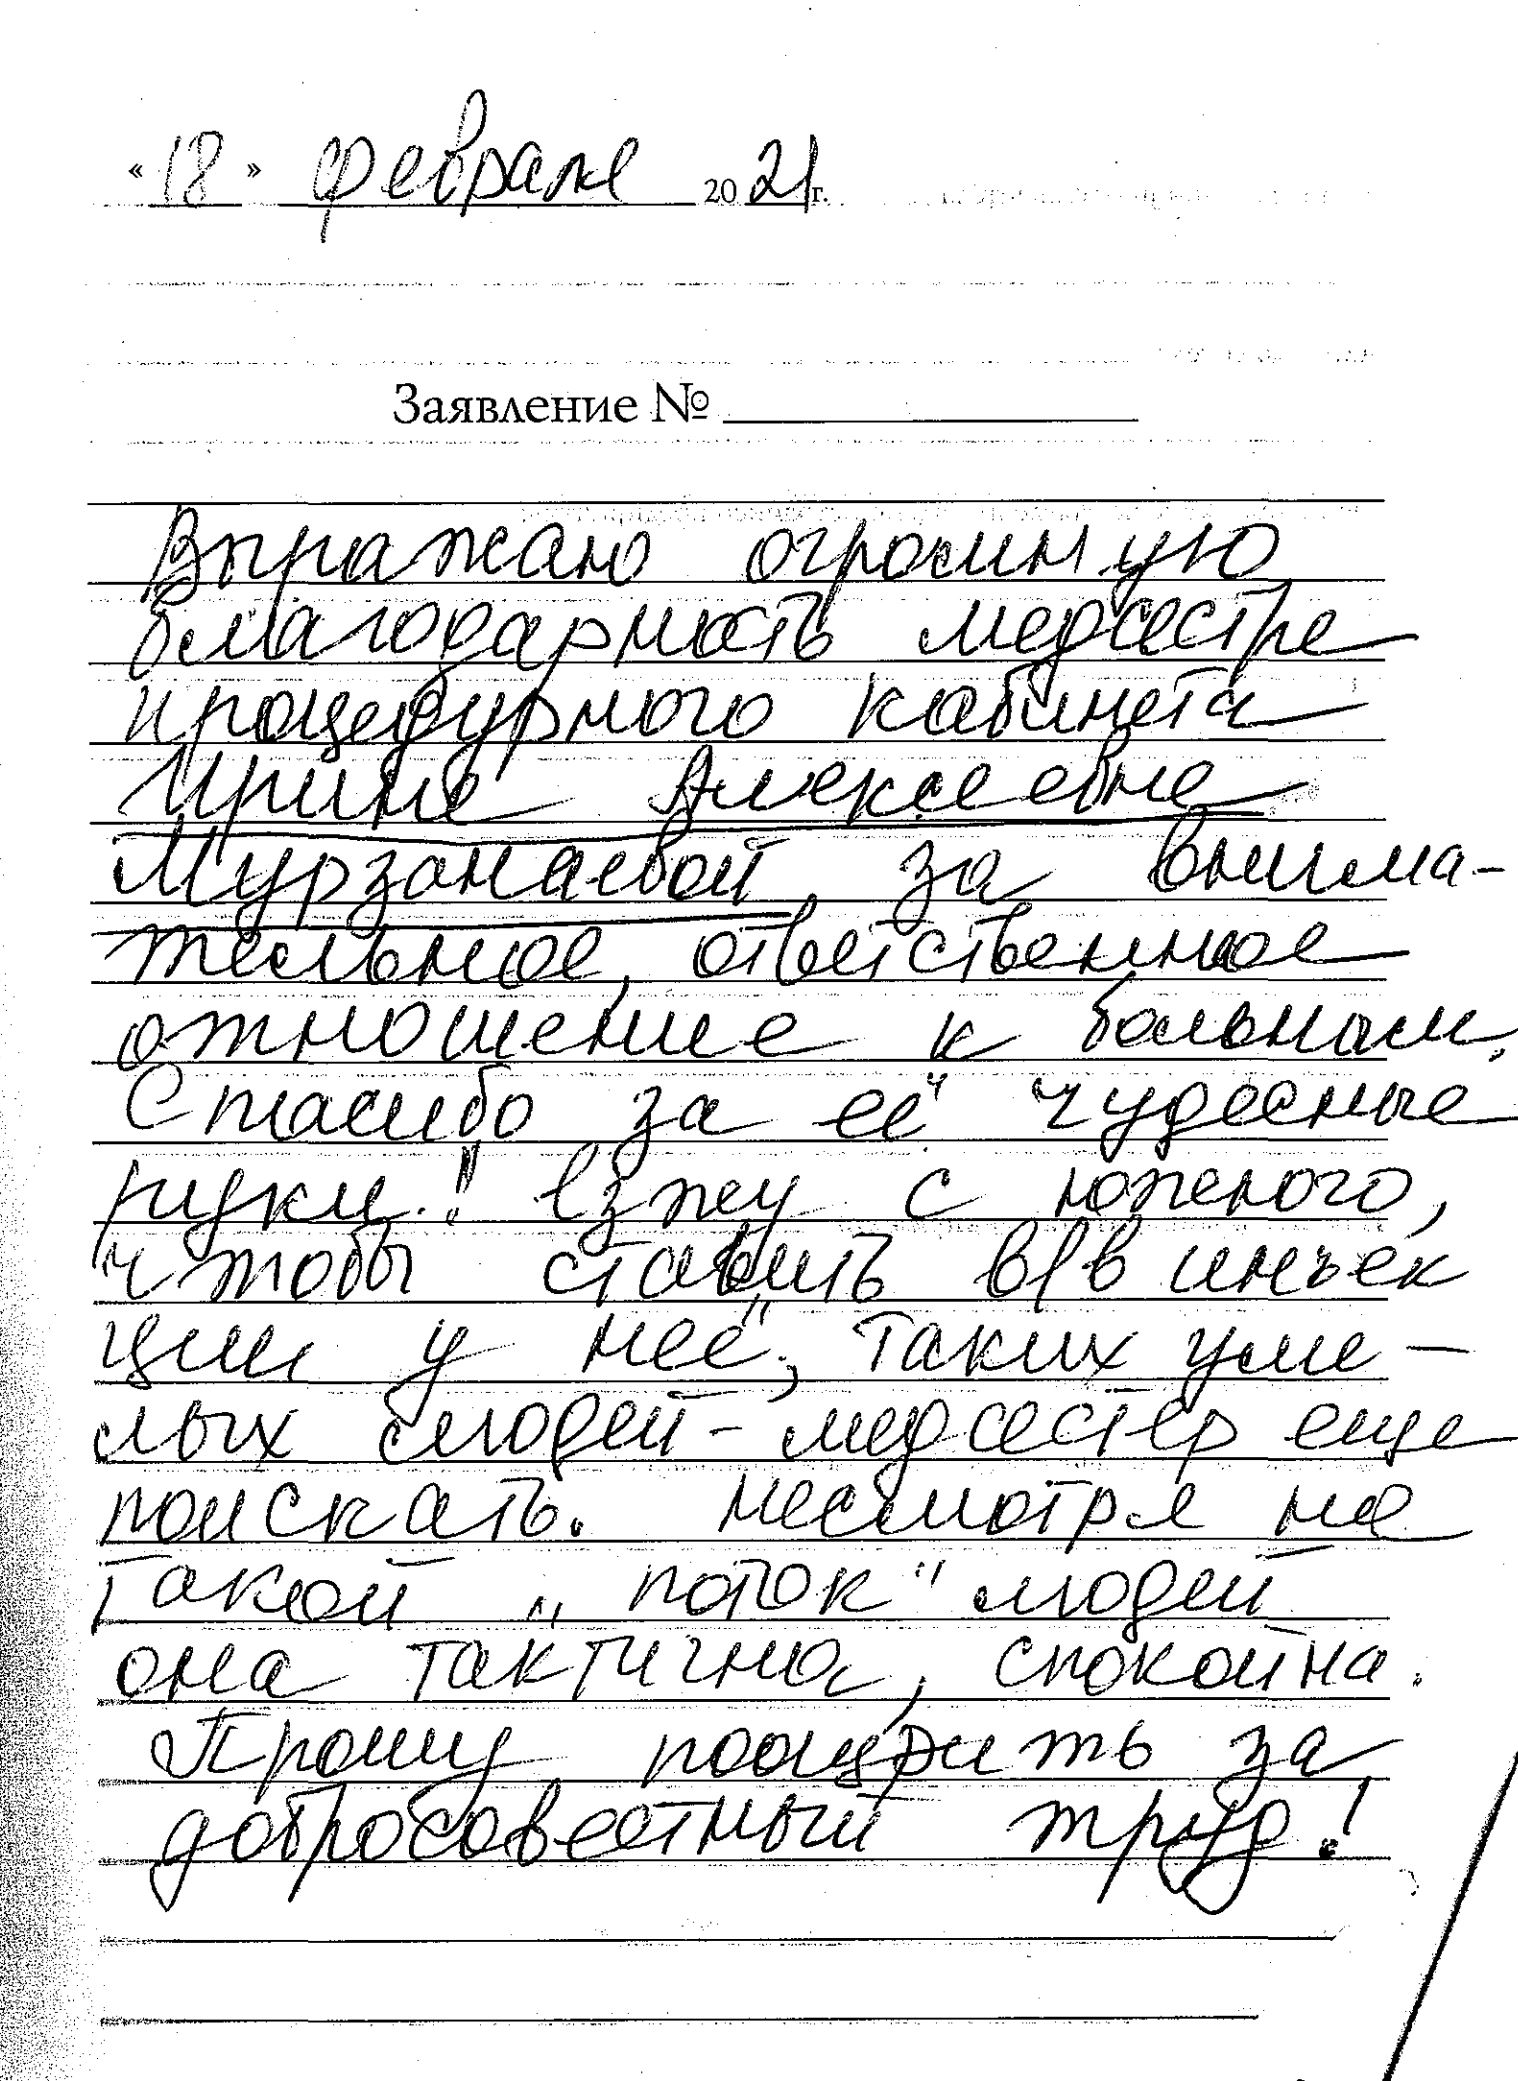 «18» февраля 2021г.
Заявление №
Выражаю огромную
благодарность медсестре
процедурного кабинета
Ирине Алексеевне
Мурзанаевой за внима-
тельное, ответственное
отношение к больным.
Спасибо за её чудесные
руки! Езжу с южного,
чтобы ставить в/в инъек
ции у неё, таких уме-
лых людей - медсестёр еще
поискать. Несмотря на
такой „поток" людей
она тактична, спокойна.
Прошу поощрить за
добросовестный труд!